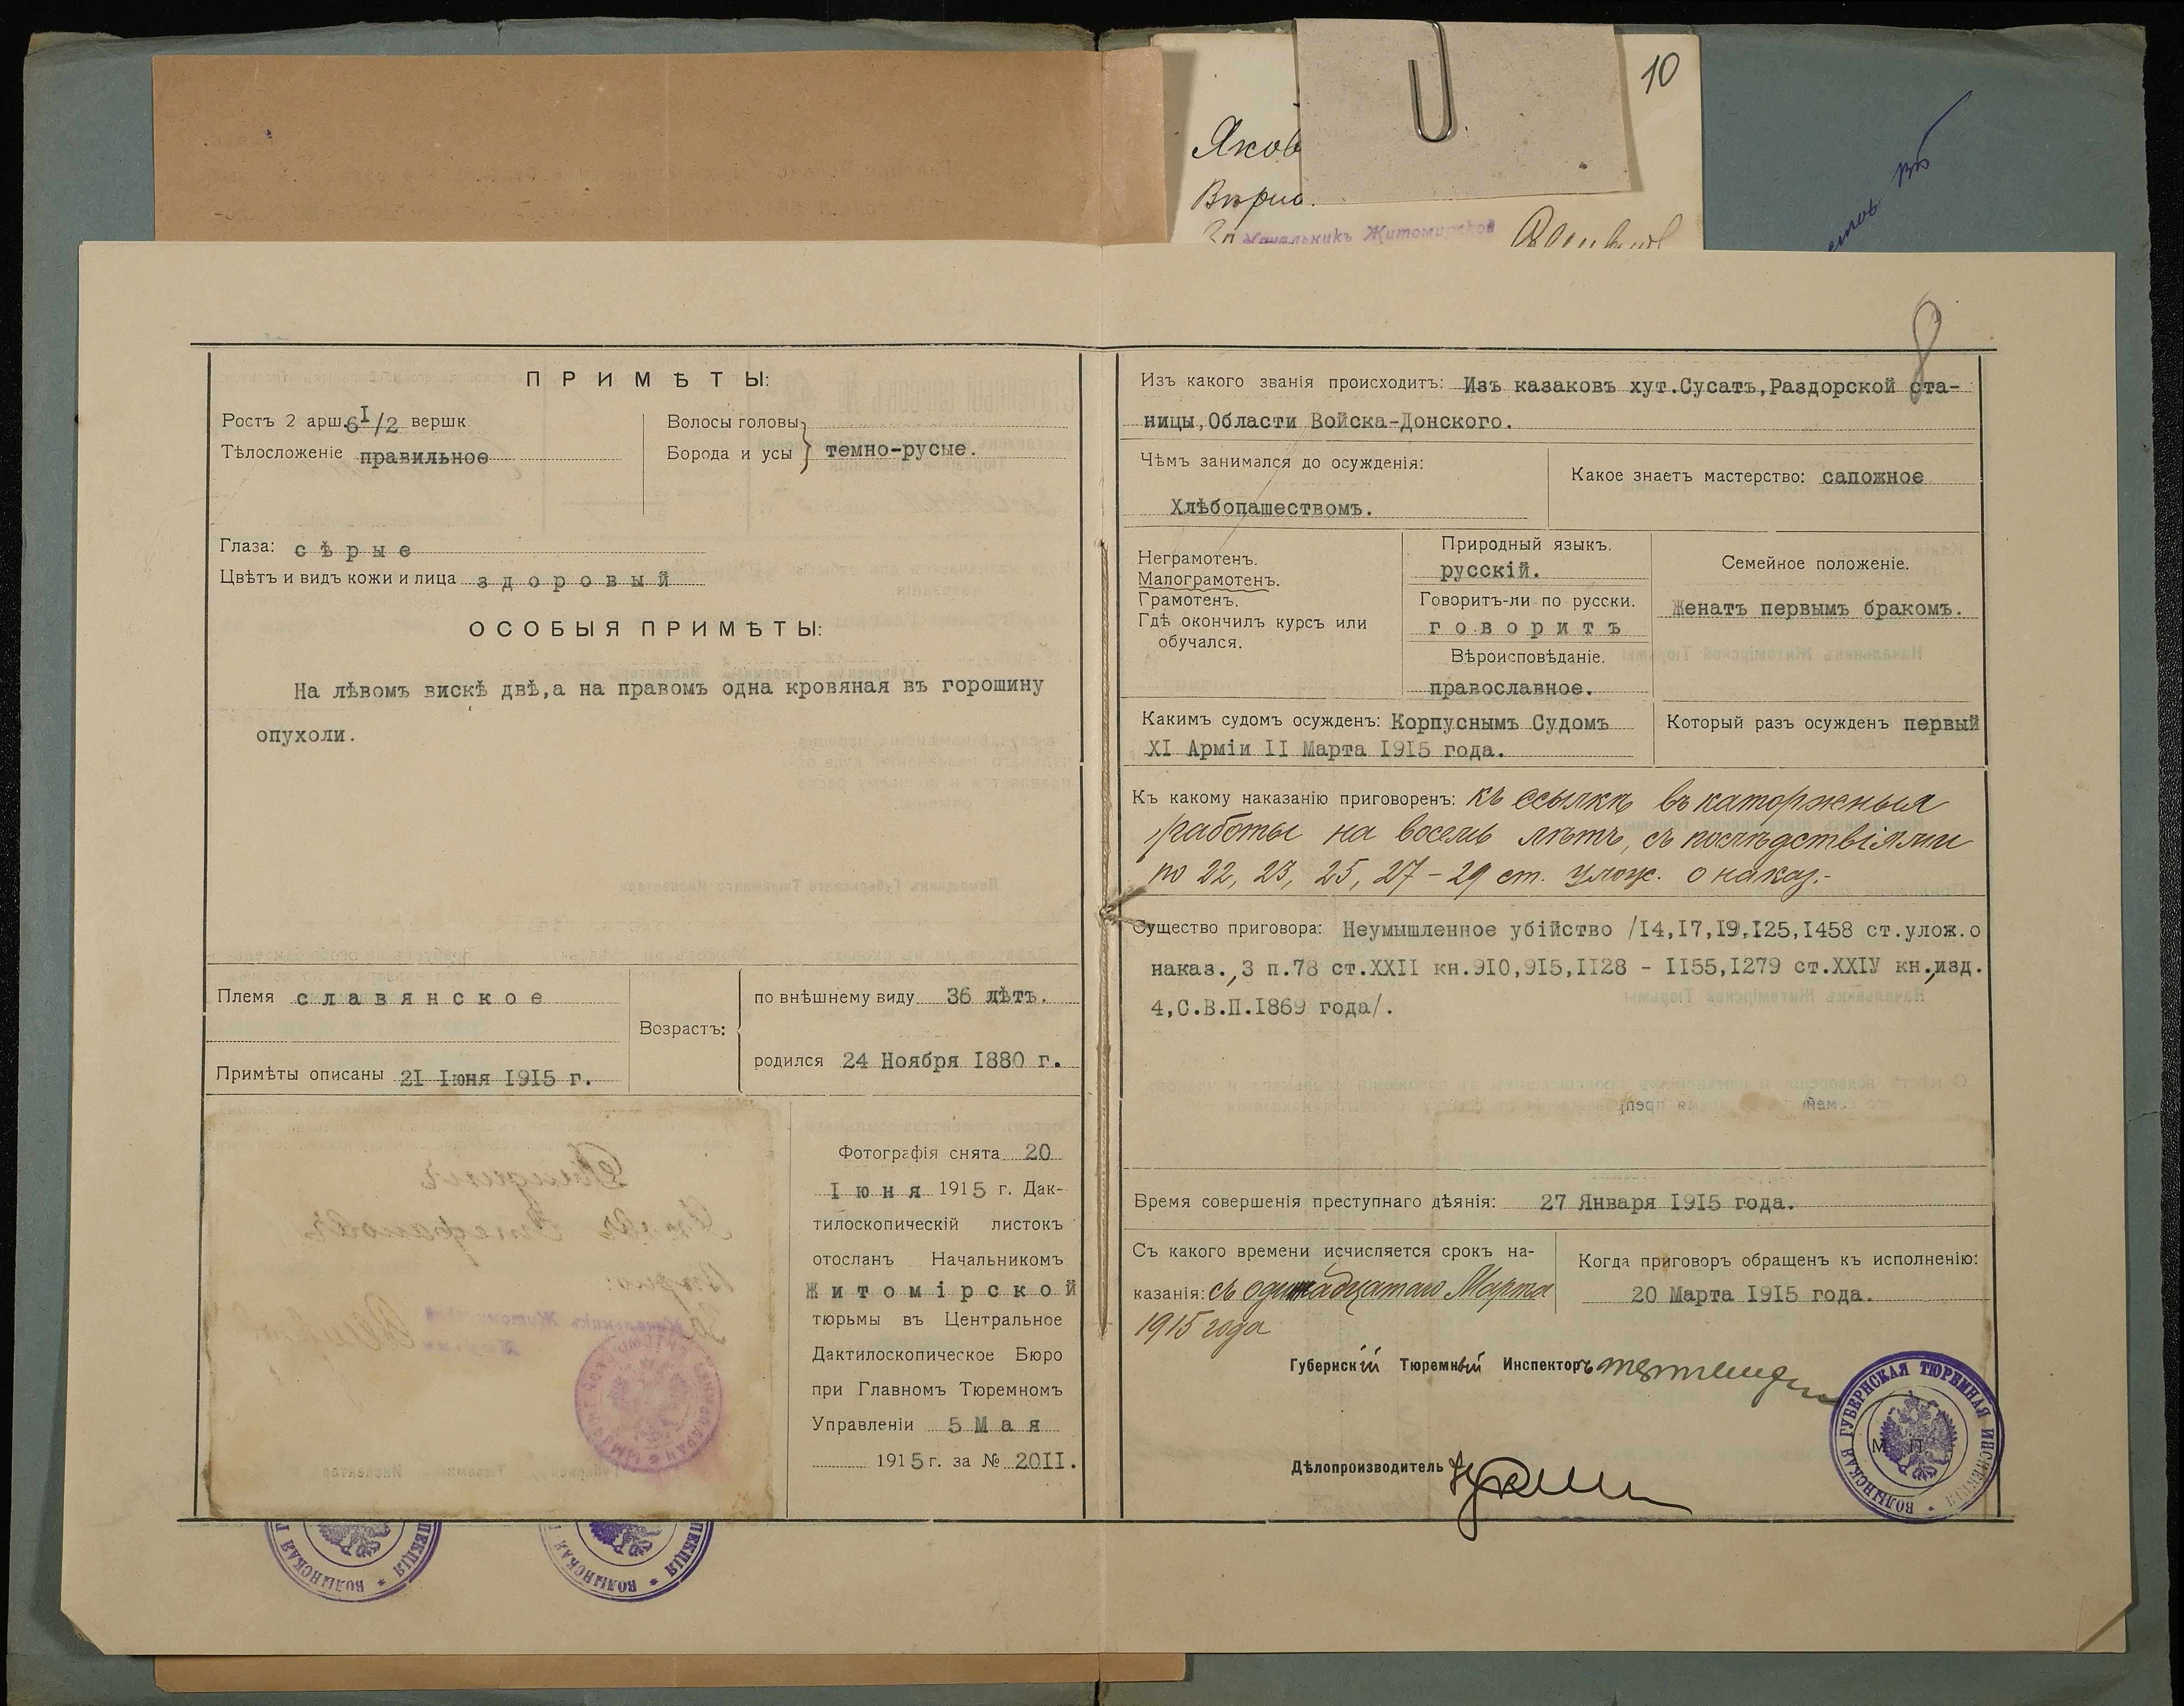 10
Яков
Вѣрно.
Начальникъ Житомирской
8
ПРИМѢТЫ:
Ростъ 2 арш. 6 I/2 вершк
Тѣлосложеніе правильное
Волосы головы
Борода и усы } темно-русые.
Глаза: сѣрые
Цвѣтъ и видъ кожи и лица здоровый
ОСОБЫЯ ПРИМѢТЫ:
На лѣвомъ вискѣ двѣ,а на правомъ одна кровяная въ горошину
опухоли.
Племя славянское
Примѣты описаны 21 Iюня 1915 г.
Возрастъ:
по внѣшнему виду 36 лѣтъ.
родился 24 Ноября I880 г.
Фотографія снята 20
Iюня 1915 г. Дак-
тилоскопическій листокъ
отосланъ Начальникомъ
Житомірской
тюрьмы въ Центральное
Дактилоскопическое Бюро
при Главномъ Тюремномъ
Управленіи 5 Мая
1915 г. за № 20II.
Изъ какого званія происходитъ: Изъ казаковъ хут.Сусатъ,Раздорской ста-
ницы,Области Войска-Донского.
Чѣмъ занимался до осужденія:
Хлѣбопашествомъ.
Какое знаетъ мастерство: сапожное
Неграмотенъ.
Малограмотенъ.
Грамотенъ.
Гдѣ окончилъ курсъ или
обучался.
Природный языкъ.
русскій.
Говоритъ-ли по русски.
говоритъ
Вѣроисповѣданіе.
православное.
Семейное положеніе.
Женатъ первымъ бракомъ.
Какимъ судомъ осужденъ: Корпуснымъ Судомъ
XI Арміи II Марта I9I5 года.
Который разъ осужденъ первый
Къ какому наказанію приговоренъ: къ ссылкѣ въ каторжныя
работы на восемь лѣтъ, съ послѣдствіями
по 22, 23, 25, 27-29 ст. улож. о наказ.-
Существо приговора: Неумышленное убійство /I4,I7,I9,I25,I458 ст.улож.о
наказ.,3 п.78 ст.XXII кн.9I0,9I5,II28 - II55,I279 ст.XXIV кн.,изд.
4,С.В.П.I869 года/.
Время совершенія преступнаго дѣянія: 27 Января I9I5 года.
Съ какого времени исчисляется срокъ на-
казанія: съ одиннадцатаго Марта
1915 года
Когда приговоръ обращенъ къ исполненію:
20 Марта I9I5 года.
Губернскій Тюремный Инспекторъ
Дѣлопроизводитель
ВОЛЫНСКАЯ ГУБЕРНСКАЯ ТЮРЕМНАЯ ИНСПЕКЦІЯ
М. П.
ВОЛЫНСКАЯ Г
ПЕКЦІЯ
ВОЛЫНСКАЯ Г
ПЕКЦІЯ